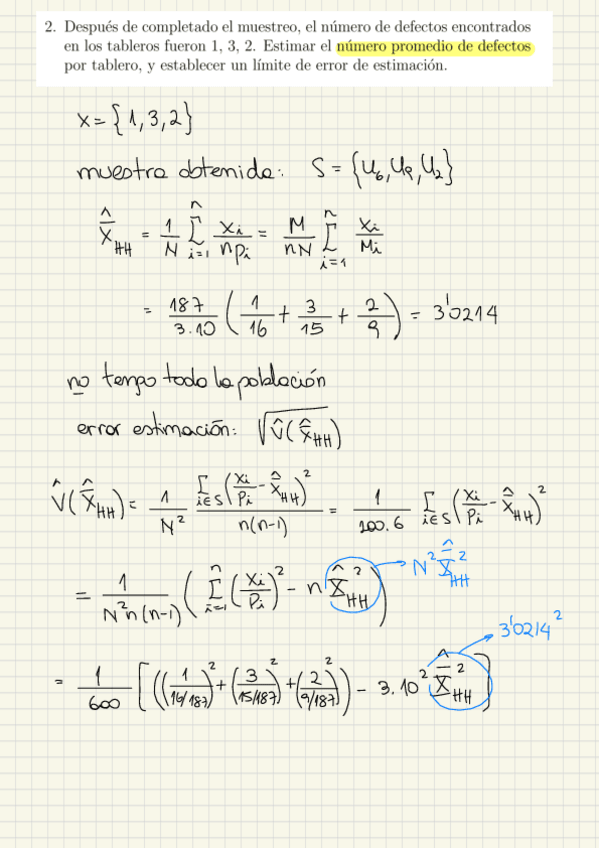 2. Después de completado el muestreo, el número de defectos encontrados
en los tableros fueron 1, 3, 2. Estimar el número promedio de defectos
por tablero, y establecer un límite de error de estimación.
X = {1, 3, 2}
muestra obtenida: S = {U₆, U₈, U₂}
X̂̄_HH = 1/N Σ_{i=1}^{n} Xi/(n Pi) = M/(nN) Σ_{i=1}^{n} Xi/Mi
= 187/(3·10) (1/16 + 3/15 + 2/9) = 3'0214
no tengo todo la población
error estimación: √(V̂(X̂̄_HH))
V̂(X̂̄_HH) = 1/N² Σ_{i∈S} (Xi/Pi - X̂̄_HH)² / n(n-1) = 1/(100·6) Σ_{i∈S} (Xi/Pi - X̂̄_HH)²
= 1/(N²n(n-1)) (Σ_{i=1}^{n} (Xi/Pi)² - n X̂²_HH) → N² X̂̄²_HH
= 1/600 [((1/(16/187))² + (3/(15/187))² + (2/(9/187))²) - 3·10² X̂̄²_HH] → 3'0214²